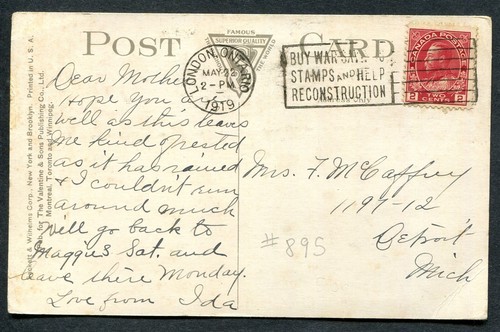 POST CARD
FAMOUS
SUPERIOR QUALITY
THE WORLD
LONDON, ONTARIO
MAY 26
2-PM
1919
BUY WAR SAVINGS
STAMPS AND HELP
RECONSTRUCTION
CANADA POSTAGE
2 TWO CENTS 2
Dear Mother
Hope you as
well as this leaves
me kind of rested
as it has rained
& I couldn't run
around much
Will go back to
Maggies Sat. and
leave there Monday.
Love from Ida
Mrs. F. McCaffrey
1197-12
Detroit
Mich
#895
& Wilhelms Corp., New York and Brooklyn. Printed in U. S. A.
Pub. for The Valentine & Sons Publishing Co., Ltd.
Montreal, Toronto and Winnipeg.